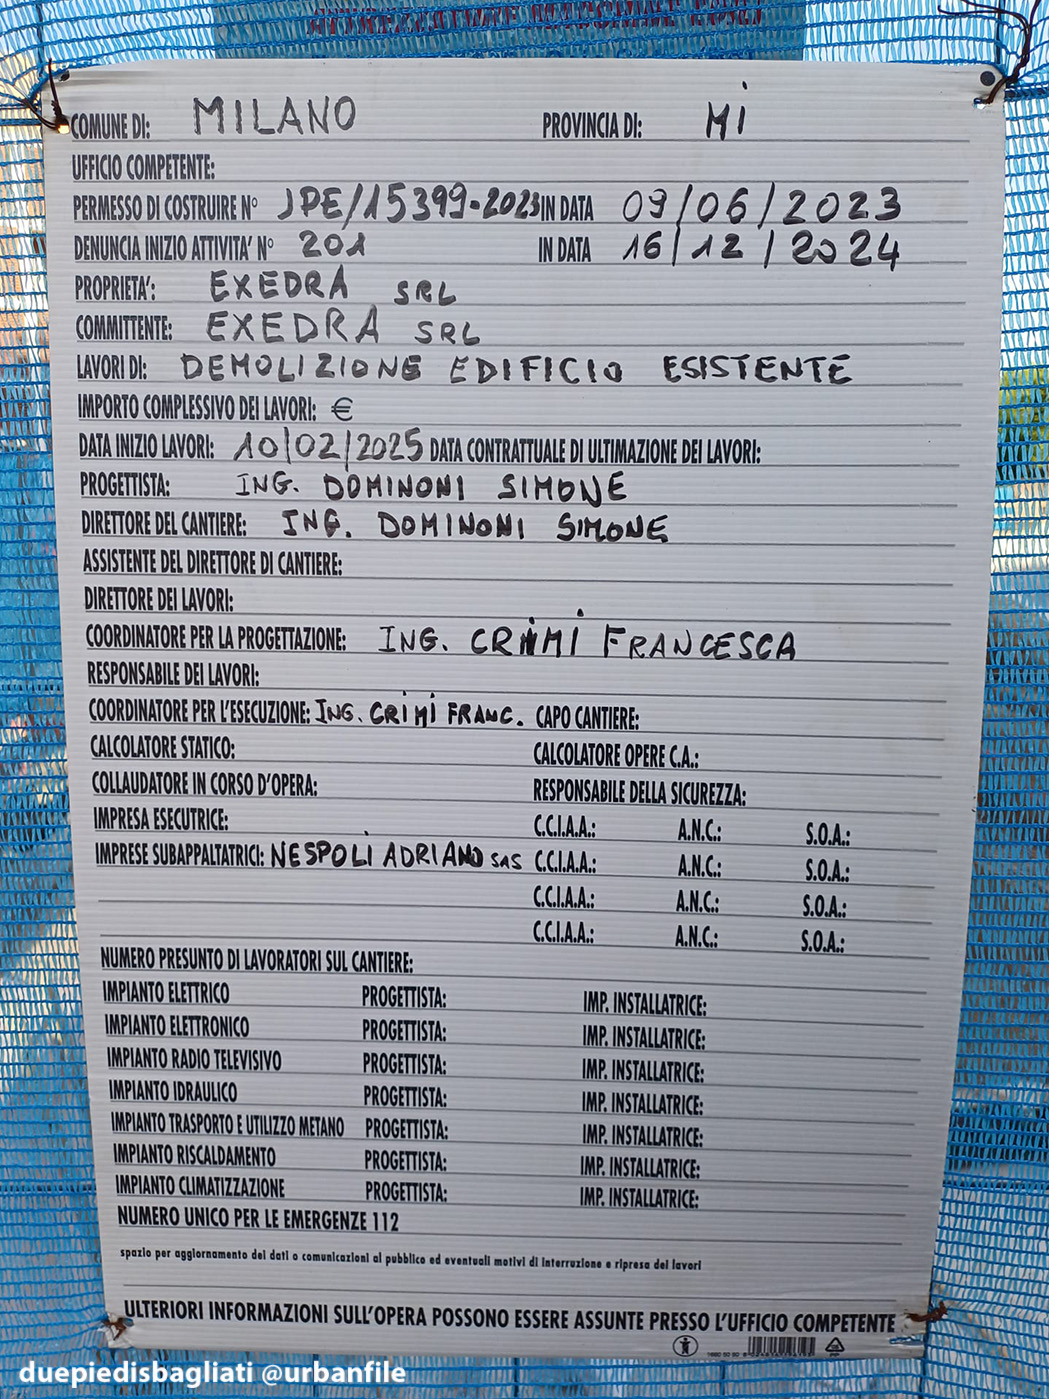 COMUNE DI: MILANO PROVINCIA DI: Mi
UFFICIO COMPETENTE:
PERMESSO DI COSTRUIRE N° JPE/15399-2023 IN DATA 09/06/2023
DENUNCIA INIZIO ATTIVITA' N° 201 IN DATA 16/12/2024
PROPRIETA': EXEDRA SRL
COMMITTENTE: EXEDRA SRL
LAVORI DI: DEMOLIZIONE EDIFICIO ESISTENTE
IMPORTO COMPLESSIVO DEI LAVORI: €
DATA INIZIO LAVORI: 10/02/2025 DATA CONTRATTUALE DI ULTIMAZIONE DEI LAVORI:
PROGETTISTA: ING. DOMINONI SIMONE
DIRETTORE DEL CANTIERE: ING. DOMINONI SIMONE
ASSISTENTE DEL DIRETTORE DI CANTIERE:
DIRETTORE DEI LAVORI:
COORDINATORE PER LA PROGETTAZIONE: ING. CRiMi FRANCESCA
RESPONSABILE DEI LAVORI:
COORDINATORE PER L'ESECUZIONE: ING. CRiMi FRANC. CAPO CANTIERE:
CALCOLATORE STATICO: CALCOLATORE OPERE C.A.:
COLLAUDATORE IN CORSO D'OPERA: RESPONSABILE DELLA SICUREZZA:
IMPRESA ESECUTRICE: C.C.I.A.A.: A.N.C.: S.O.A.:
IMPRESE SUBAPPALTATRICI: NESPOLi ADRIANO SAS C.C.I.A.A.: A.N.C.: S.O.A.:
C.C.I.A.A.: A.N.C.: S.O.A.:
C.C.I.A.A.: A.N.C.: S.O.A.:
NUMERO PRESUNTO DI LAVORATORI SUL CANTIERE:
IMPIANTO ELETTRICO PROGETTISTA: IMP. INSTALLATRICE:
IMPIANTO ELETTRONICO PROGETTISTA: IMP. INSTALLATRICE:
IMPIANTO RADIO TELEVISIVO PROGETTISTA: IMP. INSTALLATRICE:
IMPIANTO IDRAULICO PROGETTISTA: IMP. INSTALLATRICE:
IMPIANTO TRASPORTO E UTILIZZO METANO PROGETTISTA: IMP. INSTALLATRICE:
IMPIANTO RISCALDAMENTO PROGETTISTA: IMP. INSTALLATRICE:
IMPIANTO CLIMATIZZAZIONE PROGETTISTA: IMP. INSTALLATRICE:
NUMERO UNICO PER LE EMERGENZE 112
spazio per aggiornamento dei dati o comunicazioni al pubblico ed eventuali motivi di interruzione e ripresa dei lavori
ULTERIORI INFORMAZIONI SULL'OPERA POSSONO ESSERE ASSUNTE PRESSO L'UFFICIO COMPETENTE
duepiedisbagliati @urbanfile